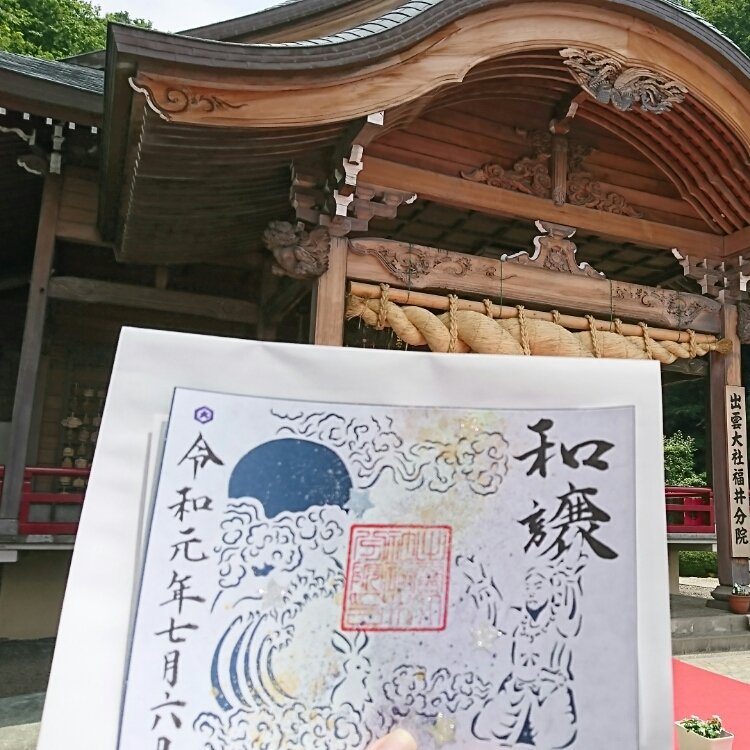 和譲
令和元年七月六日
出雲大社福井分院